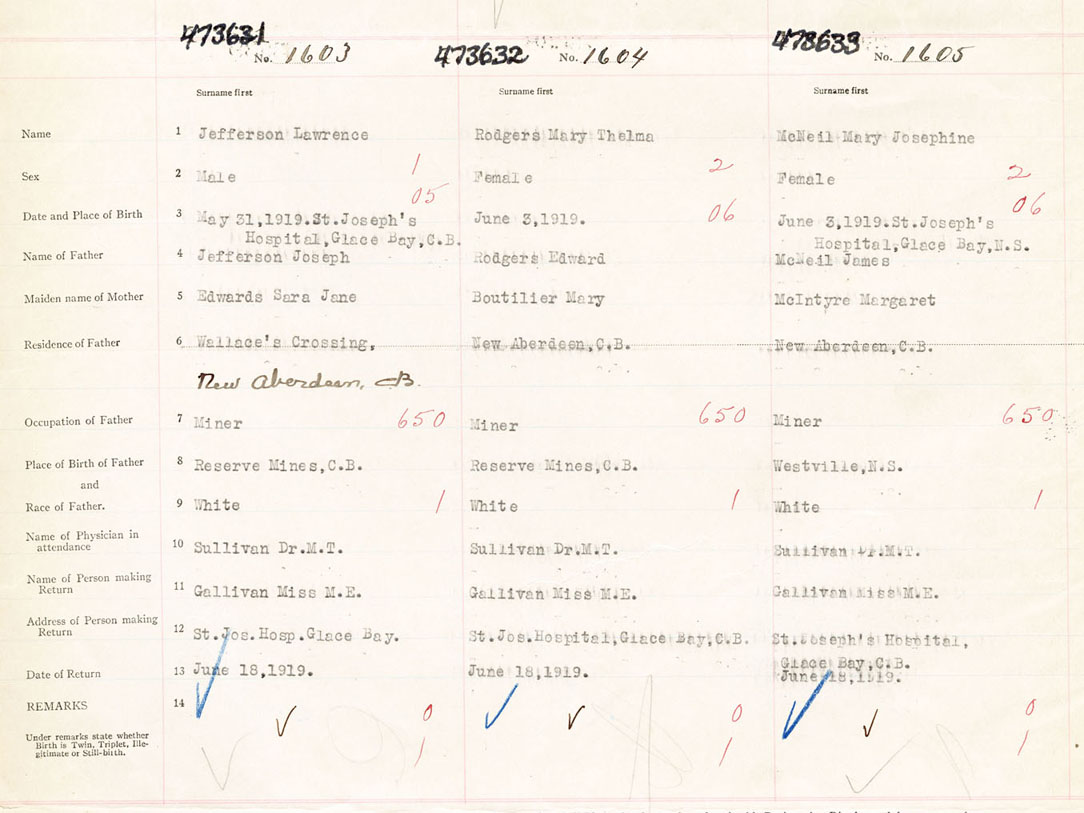 473631 No. 1603 473632 No. 1604 473633 No. 1605
Surname first Surname first Surname first
Name 1 Jefferson Lawrence Rodgers Mary Thelma McNeil Mary Josephine
Sex 2 Male 1 Female 2 Female 2
05 06 06
Date and Place of Birth 3 May 31,1919.St.Joseph's June 3,1919. June 3,1919.St.Joseph's
Hospital,Glace Bay,C.B. Hospital,Glace Bay,N.S.
Name of Father 4 Jefferson Joseph Rodgers Edward McNeil James
Maiden name of Mother 5 Edwards Sara Jane Boutilier Mary McIntyre Margaret
Residence of Father 6 Wallace's Crossing, New Aberdeen,C.B. New Aberdeen,C.B.
New Aberdeen, CB.
Occupation of Father 7 Miner 650 Miner 650 Miner 650
Place of Birth of Father 8 Reserve Mines,C.B. Reserve Mines,C.B. Westville,N.S.
and
Race of Father. 9 White 1 White 1 White 1
Name of Physician in
attendance 10 Sullivan Dr.M.T. Sullivan Dr.M.T. Sullivan Dr.M.T.
Name of Person making
Return 11 Gallivan Miss M.E. Gallivan Miss M.E. Gallivan Miss M.E.
Address of Person making
Return 12 St.Jos.Hosp.Glace Bay. St.Jos.Hospital,Glace Bay,C.B. St.Joseph's Hospital,
Glace Bay,C.B.
Date of Return 13 June 18,1919. June 18,1919. June 18,1919.
REMARKS 14 0 0 0
Under remarks state whether
Birth is Twin, Triplet, Ille-
gitimate or Still-birth. 1 1 1